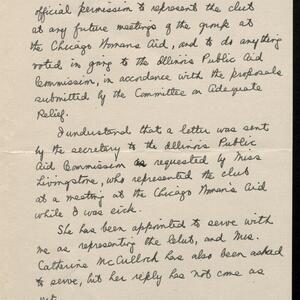 official permission to represent the club
at any future meetings of the group at
the Chicago Womans Aid, and to do anything
voted in going to the Illinois Public Aid
Commission, in accordance with the proposals
submitted by the Committee on Adequate
Relief.
I understand that a letter was sent
by the secretary to the Illinois Public
Aid Commission as requested by Miss
Livingstone, who represented the club
at a meeting at the Chicago Woman's Aid
while I was sick.
She has been appointed to serve with
me as representing the Club, and Mrs.
Catherine McCulloch has also been asked
to serve, but her reply has not come as
yet.